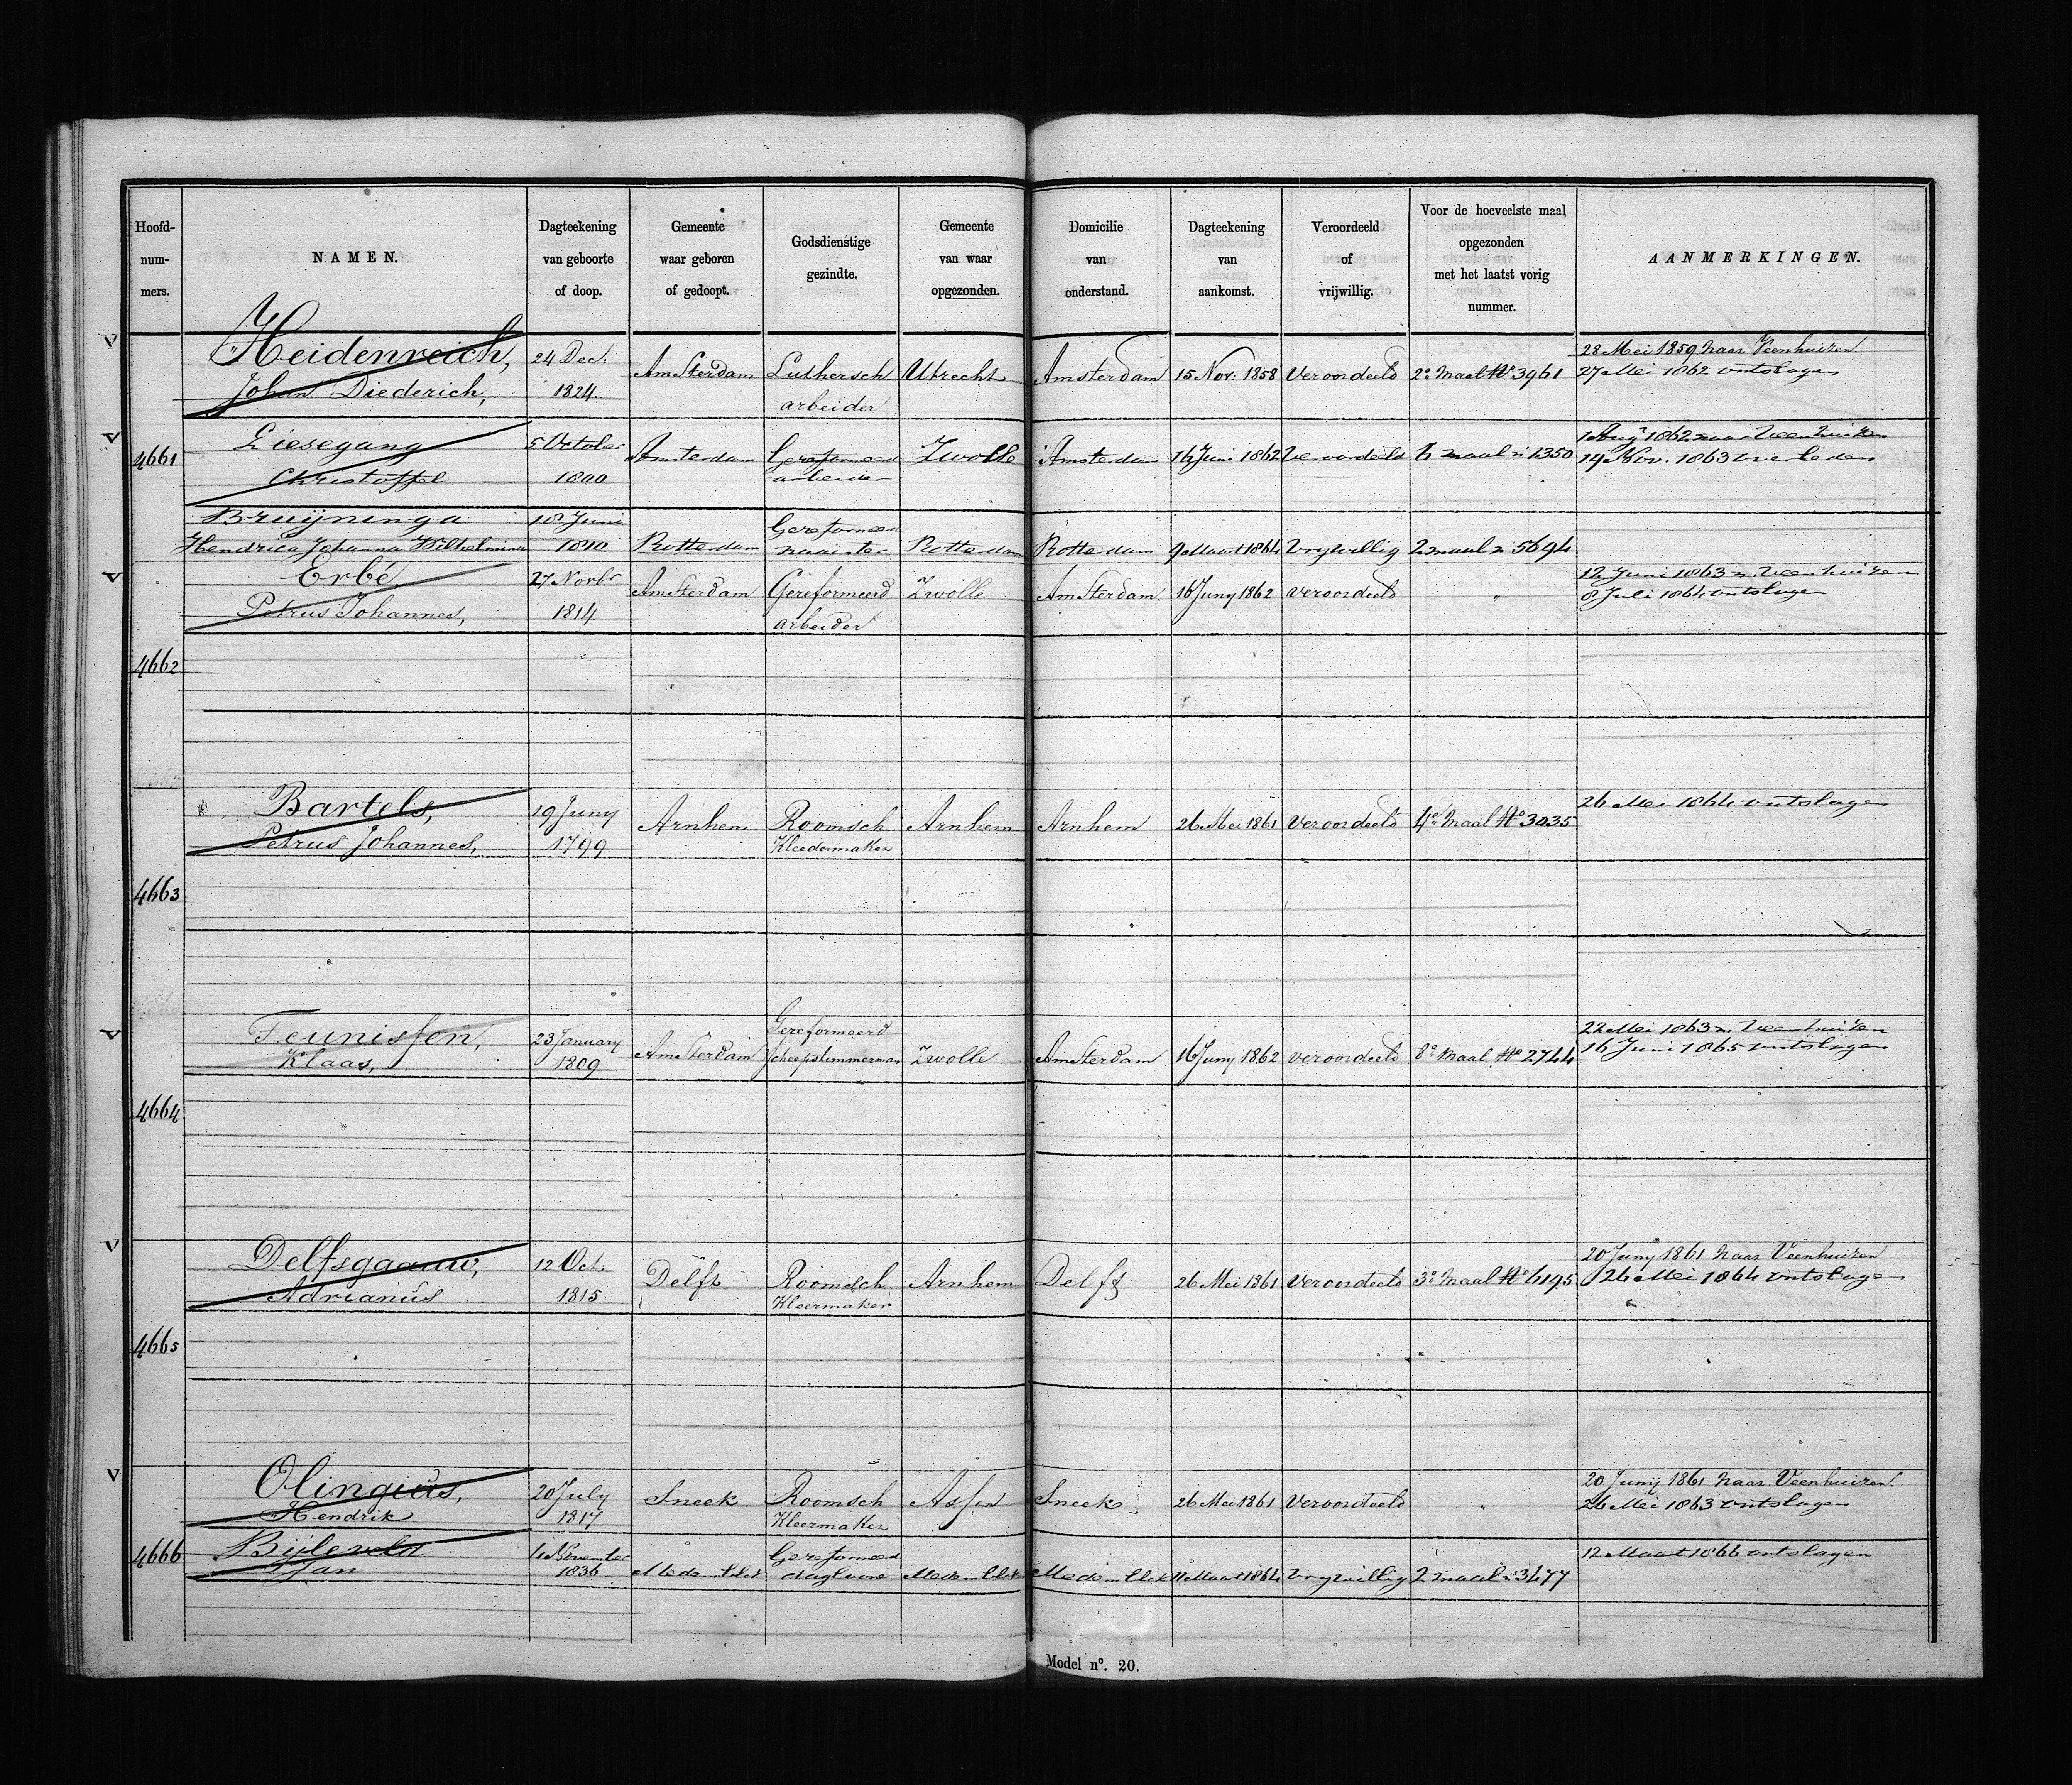 Hoofd-
num-
mers.
NAMEN.
Dagteekening
van geboorte
of doop.
Gemeente
waar geboren
of gedoopt.
Godsdienstige
gezindte.
Gemeente
van waar
opgezonden.
Domicilie
van
onderstand.
Dagteekening
van
aankomst.
Veroordeeld
of
vrijwillig.
Voor de hoeveelste maal
opgezonden
met het laatst vorig
nummer.
AANMERKINGEN.
V
Heidenreich,
Johan Diederich,
24 Dec.
1824.
Amsterdam
Luthersch
arbeider
Utrecht
Amsterdam
15 Nov. 1858
Veroordeeld
2e Maal No 3961
28 Mei 1859 naar Veenhuizen
27 Mei 1862 ontslagen
V
4661
Liesegang
Christoffel
5 October
1800
Amsterdam
Gereformeerd
arbeider
Zwolle
Amsterdam
16 Juni 1862
Veroordeeld
maal n 1350
1862 naar Veenhuizen
14 Nov. 1863 overleden
Bruijninga
Hendrica Johanna Wilhelmina
Juni
Rotterdam
Gereformeerd
naaister
Rotterdam
Rotterdam
9 Maart 1864
Vrywillig
2 maal n 5694
V
Erbé
Petrus Johannes,
27 Novbr
1814
Amsterdam
Gereformeerd
arbeider
Zwolle
Amsterdam
16 Juny 1862
veroordeeld
"
12 Juni 1863 n. Veenhuizen
8 Juli 1864 ontslagen
4662
Bartels,
Petrus Johannes,
19 Juny
1799
Arnhem
Roomsch
Kleedermaker
Arnhem
Arnhem
26 Mei 1861
Veroordeeld
4e Maal No 3035
26 Mei 1864 ontslagen
4663
V
Teunissen,
Klaas,
23 January
1809
Amsterdam
Gereformeerd
Scheepstimmerman
Zwolle
Amsterdam
16 Juny 1862
veroordeeld
8e Maal No 2744
22 Mei 1863 n. Veenhuizen
16 Juni 1865 ontslagen
4664
V
Delfsgaauw,
Adrianus
12 Oct.
1815
Delft
Roomsch
Kleermaker
Arnhem
Delft
26 Mei 1861
Veroordeeld
3e Maal No 4195
20 Juny 1861 naar Veenhuizen
26 Mei 1864 ontslagen
4665
V
Olingius,
Hendrik
20 July
1817
Sneek
Roomsch
Kleermaker
Assen
Sneek
26 Mei 1861
Veroordeeld
"
20 Junij 1861 naar Veenhuizen.
26 Mei 1863 ontslagen
4666
Bijleveld
Jan
November
1836
Medemblik
Gereformeerd
dagloone
Medemblik
Medemblik
11 Maart 1864
Vrywillig
2 maal n 3477
12 Maart 1866 ontslagen
Model no. 20.